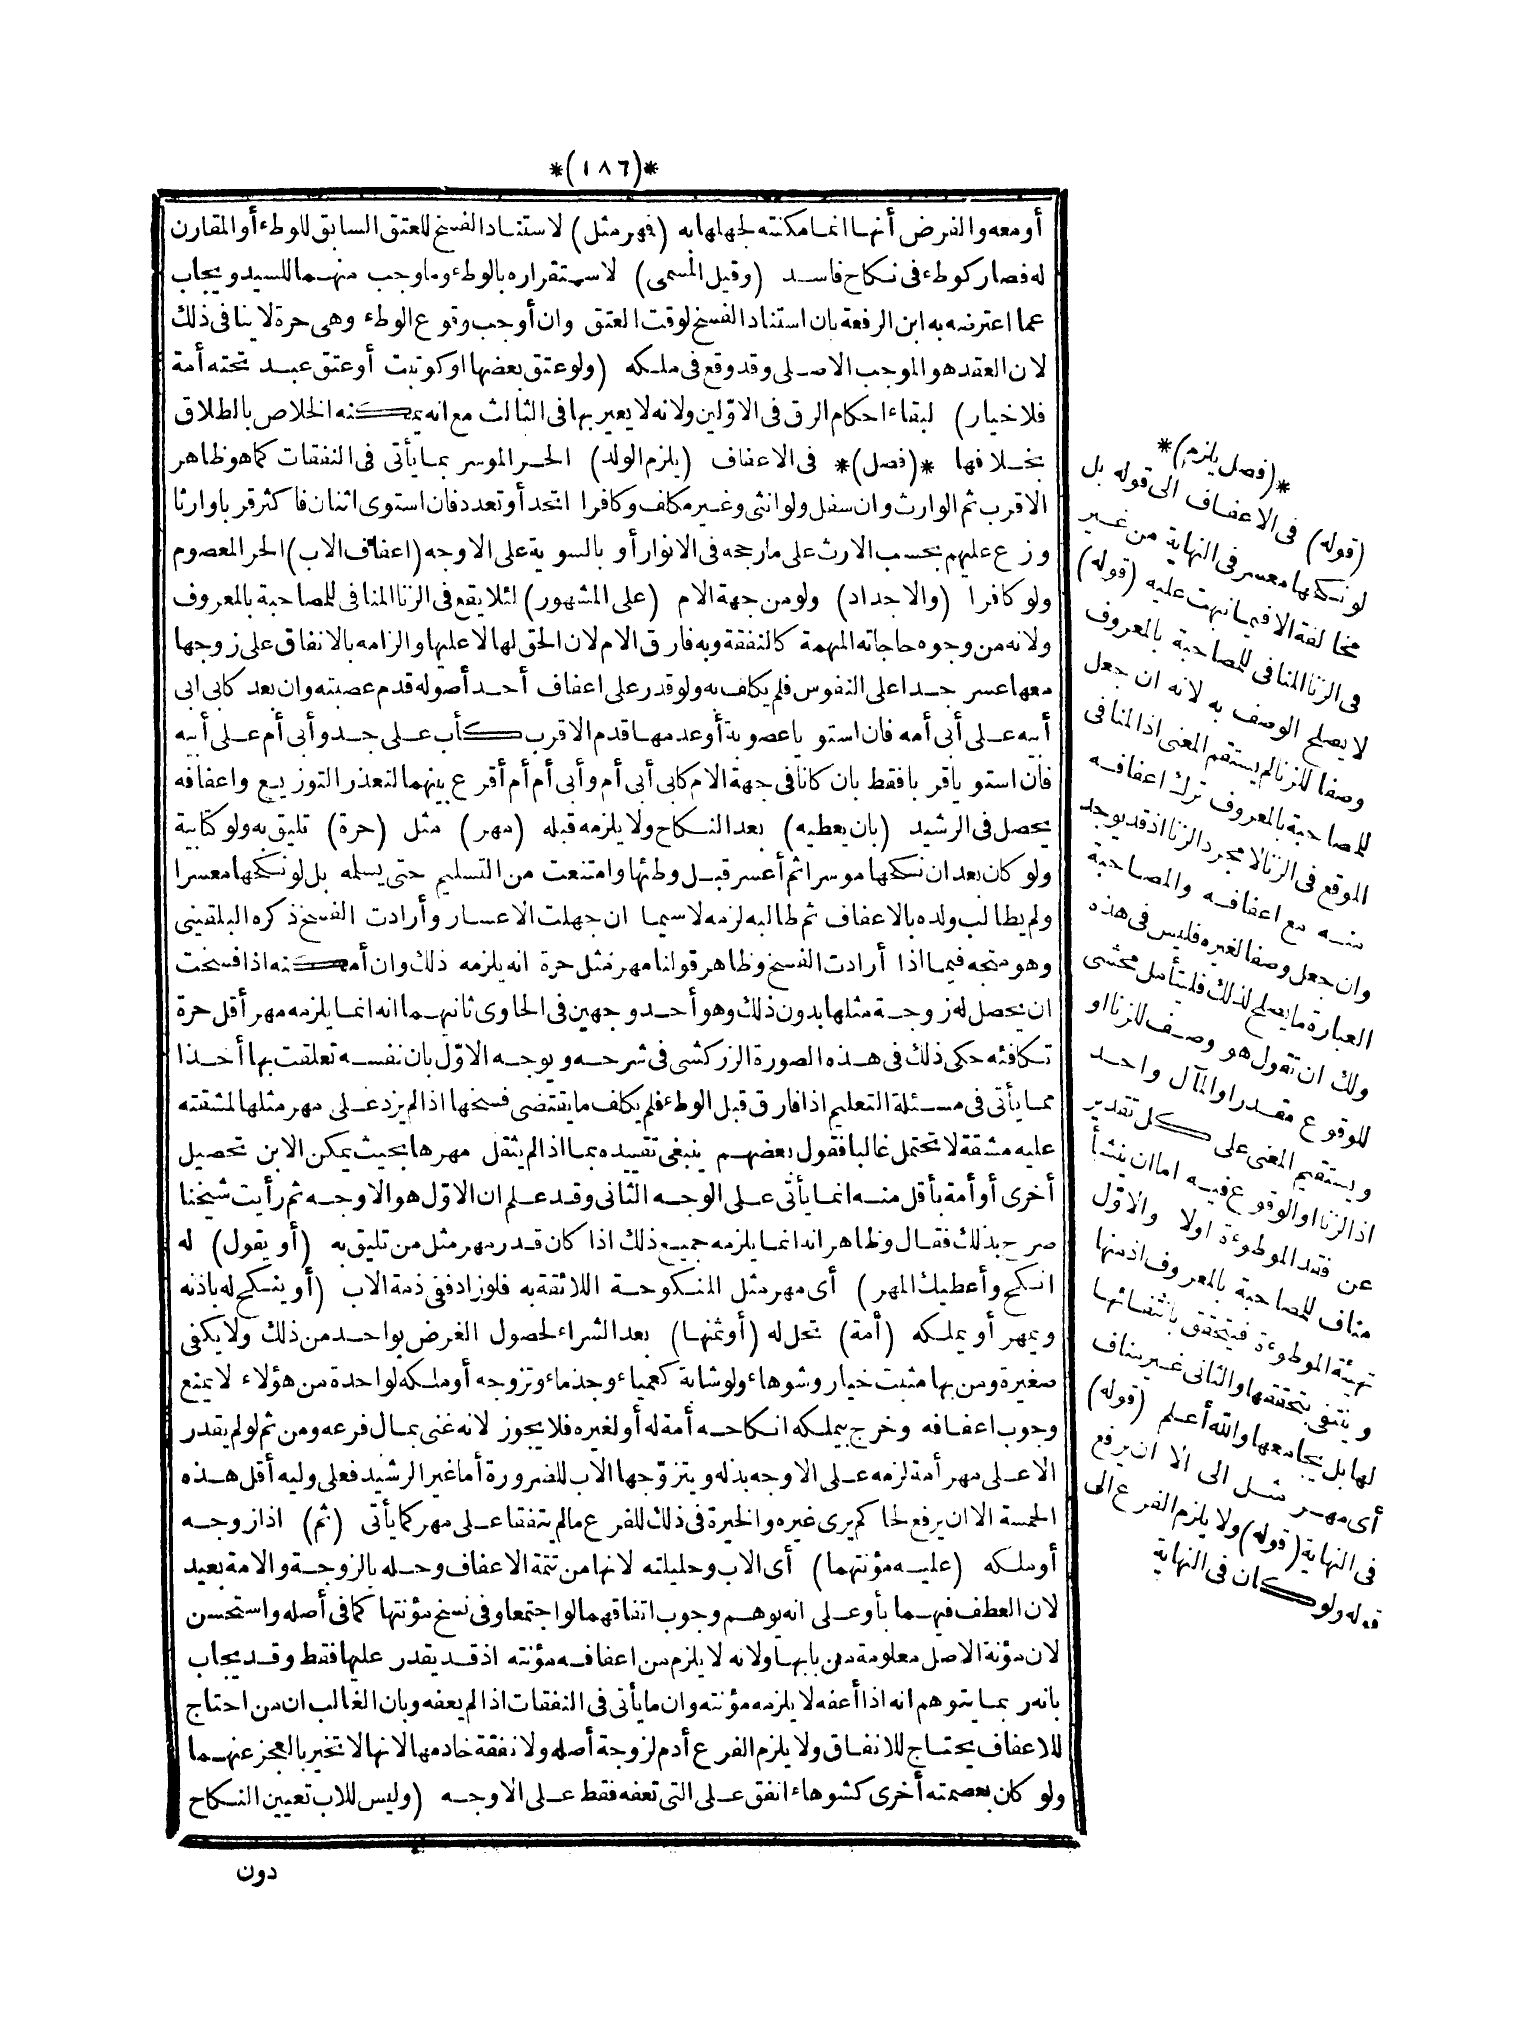 *(١٨٦)*
أو معه والفرض أنها انما مكنته لجهلها به (فهر مثل) لاستناد الفسخ للعتق السابق للوطء أو المقارن
له فصار كوطء فى نكاح فاسد (وقيل المسمى) لاستقراره بالوطء وما وجب منهما للسيد ويجاب
عما اعترضه به ابن الرفعة بان استناد الفسخ لوقت العتق وان أوجب وقوع الوطء وهى حرة لا ينافى ذلك
لان العقد هو الموجب الاصلى وقد وقع فى ملكه (ولو عتق بعضها او كوتبت أو عتق عبد تحته أمة
فلا خيار) لبقاء احكام الرق فى الاوّلين ولانه لا يعير بها فى الثالث مع انه يمكنه الخلاص بالطلاق
بخلافها *(فصل)* فى الاعفاف (يلزم الولد) الحر الموسر بما يأتى فى النفقات كما هو ظاهر
الاقرب ثم الوارث وان سفل ولو انثى وغير مكلف وكافرا اتحد أو تعدد فان استوى اثنان فاكثر قربا وارثا
وزع عليهم بحسب الارث على ما رجحه فى الانوار أو بالسوية على الاوجه (اعفاف الاب) الحر المعصوم
ولو كافرا (والاجداد) ولو من جهة الام (على المشهور) لئلا يقع فى الزنا المنافى للمصاحبة بالمعروف
ولانه من وجوه حاجاته المهمة كالنفقة وبه فارق الام لان الحق لها لا عليها والزامه بالانفاق على زوجها
معها عسر جدا على النفوس فلم يكلف به ولو قدر على اعفاف أحد أصوله قدم عصبته وان بعد كابى ابى
أبيه على أبى أمه فان استويا عصوبة أو عدمها قدم الاقرب كأب على جد وأبى أم على أبيه
فان استويا قربا فقط بان كانا فى جهة الام كابى أبى أم وأبى أم أم أقرع بينهما لتعذر التوزيع واعفافه
يحصل فى الرشيد (بان يعطيه) بعد النكاح ولا يلزمه قبله (مهر) مثل (حرة) تليق به ولو كتابية
ولو كان بعد ان نكحها موسرا ثم أعسر قبل وطئها وامتنعت من التسليم حتى يسلمه بل لو نكحها معسرا
ولم يطالب ولده بالاعفاف ثم طالبه لزمه لا سيما ان جهلت الاعسار وأرادت الفسخ ذكره البلقينى
وهو متجه فيما اذا أرادت الفسخ وظاهر قولنا مهر مثل حرة انه يلزمه ذلك وان أمكنه اذا فسخت
ان يحصل له زوجة مثلها بدون ذلك وهو أحد وجهين فى الحاوى ثانيهما انه انما يلزمه مهر أقل حرة
تكافئه حكى ذلك فى هذه الصورة الزركشى فى شرحه ويوجه الاوّل بان نفسه تعلقت بها أخذا
مما يأتى فى مسئلة التعليم اذا فارق قبل الوطء فلم يكلف ما يقتضى فسخها اذا لم يزد على مهر مثلها لمشقته
عليه مشقة لا تحتمل غالبا فقول بعضهم ينبغى تقييده بما اذا لم يثقل مهرها بحيث يمكن الابن تحصيل
أخرى أو أمة بأقل منه انما يأتى على الوجه الثانى وقد علم ان الاوّل هو الاوجه ثم رأيت شيخنا
صرح بذلك فقال وظاهر انه انما يلزمه جميع ذلك اذا كان قدر مهر مثل من تليق به (أو يقول) له
انكح وأعطيك المهر) أى مهر مثل المنكوحة اللائقة به فلو زاد ففى ذمة الاب (أو ينكح له باذنه
ويمهر أو يملكه (أمة) تحل له (أو ثمنها) بعد الشراء لحصول الغرض بواحد من ذلك ولا يكفى
صغيرة ومن بها مثبت خيار وشوهاء ولو شابة كعمياء وجذماء وتزوجه أو ملكه لواحدة من هؤلاء لا يمنع
وجوب اعفافه وخرج بيملكه انكاحه أمة له أو لغيره فلا يجوز لانه غنى بمال فرعه ومن ثم لو لم يقدر
الا على مهر أمة لزمه على الاوجه بذله ويتزوّجها الاب للضرورة أما غير الرشيد فعلى وليه أقل هذه
الخمسة الا ان يرفع لحاكم يرى غيره والخيرة فى ذلك للفرع ما لم يتفقا على مهر كما يأتى (ثم) اذا زوجه
أو ملكه (عليه مؤنتهما) أى الاب وحليلته لانها من تتمة الاعفاف وحمله بالزوجة والامة بعيد
لان العطف فيهما بأو على انه يوهم وجوب اتفاقهما لو اجتمعا وفى نسخ مؤنتها كما فى أصله واستحسن
لان مؤنة الاصل معلومة من بابها ولانه لا يلزم من اعفافه مؤنته اذ قد يقدر عليها فقط وقد يجاب
بانه ربما يتوهم انه اذا أعفه لا يلزمه مؤنته وان ما يأتى فى النفقات اذا لم يعفه وبان الغالب ان من احتاج
للاعفاف يحتاج للانفاق ولا يلزم الفرع أدم لزوجة أصله ولا نفقة خادمها لانها لا تتخير بالعجز عنهما
ولو كان بعصمته أخرى كشوهاء انفق على التى تعفه فقط على الاوجه (وليس للاب تعيين النكاح
دون
*(فصل يلزم)*
(قوله) فى الاعفاف الى قوله بل
لو نكحها معسر فى النهاية من غير
مخالفة الا فيما نبهت عليه (قوله)
فى الزنا المنافى للمصاحبة بالمعروف
لا يصلح الوصف به لانه ان جعل
وصفا للزنا لم يستقم المعنى اذ المنافى
للمصاحبة بالمعروف ترك اعفافه
الموقع فى الزنا لا مجرد الزنا اذ قد يوجد
منه مع اعفافه والمصاحبة
وان جعل وصفا لغيره فليس فى هذه
العبارة ما يصلح لذلك فليتأمل محشى
ولك ان تقول هو وصف للزنا او
للوقوع مقدرا والمآل واحد
ويستقيم المعنى على كل تقدير
اذ الزنا او الوقوع فيه اما ان ينشأ
عن فقد الموطوءة اولا والاوّل
مناف للمصاحبة بالمعروف اذ منها
تهيئة الموطوءة فيتحقق بانتفائها
وينتفى بتحققها والثانى غير مناف
لها بل يجامعها والله أعلم (قوله)
أى مهر مثل الى الا ان يرفع
فى النهاية (قوله) ولا يلزم الفرع الى
قوله ولو كان فى النهاية